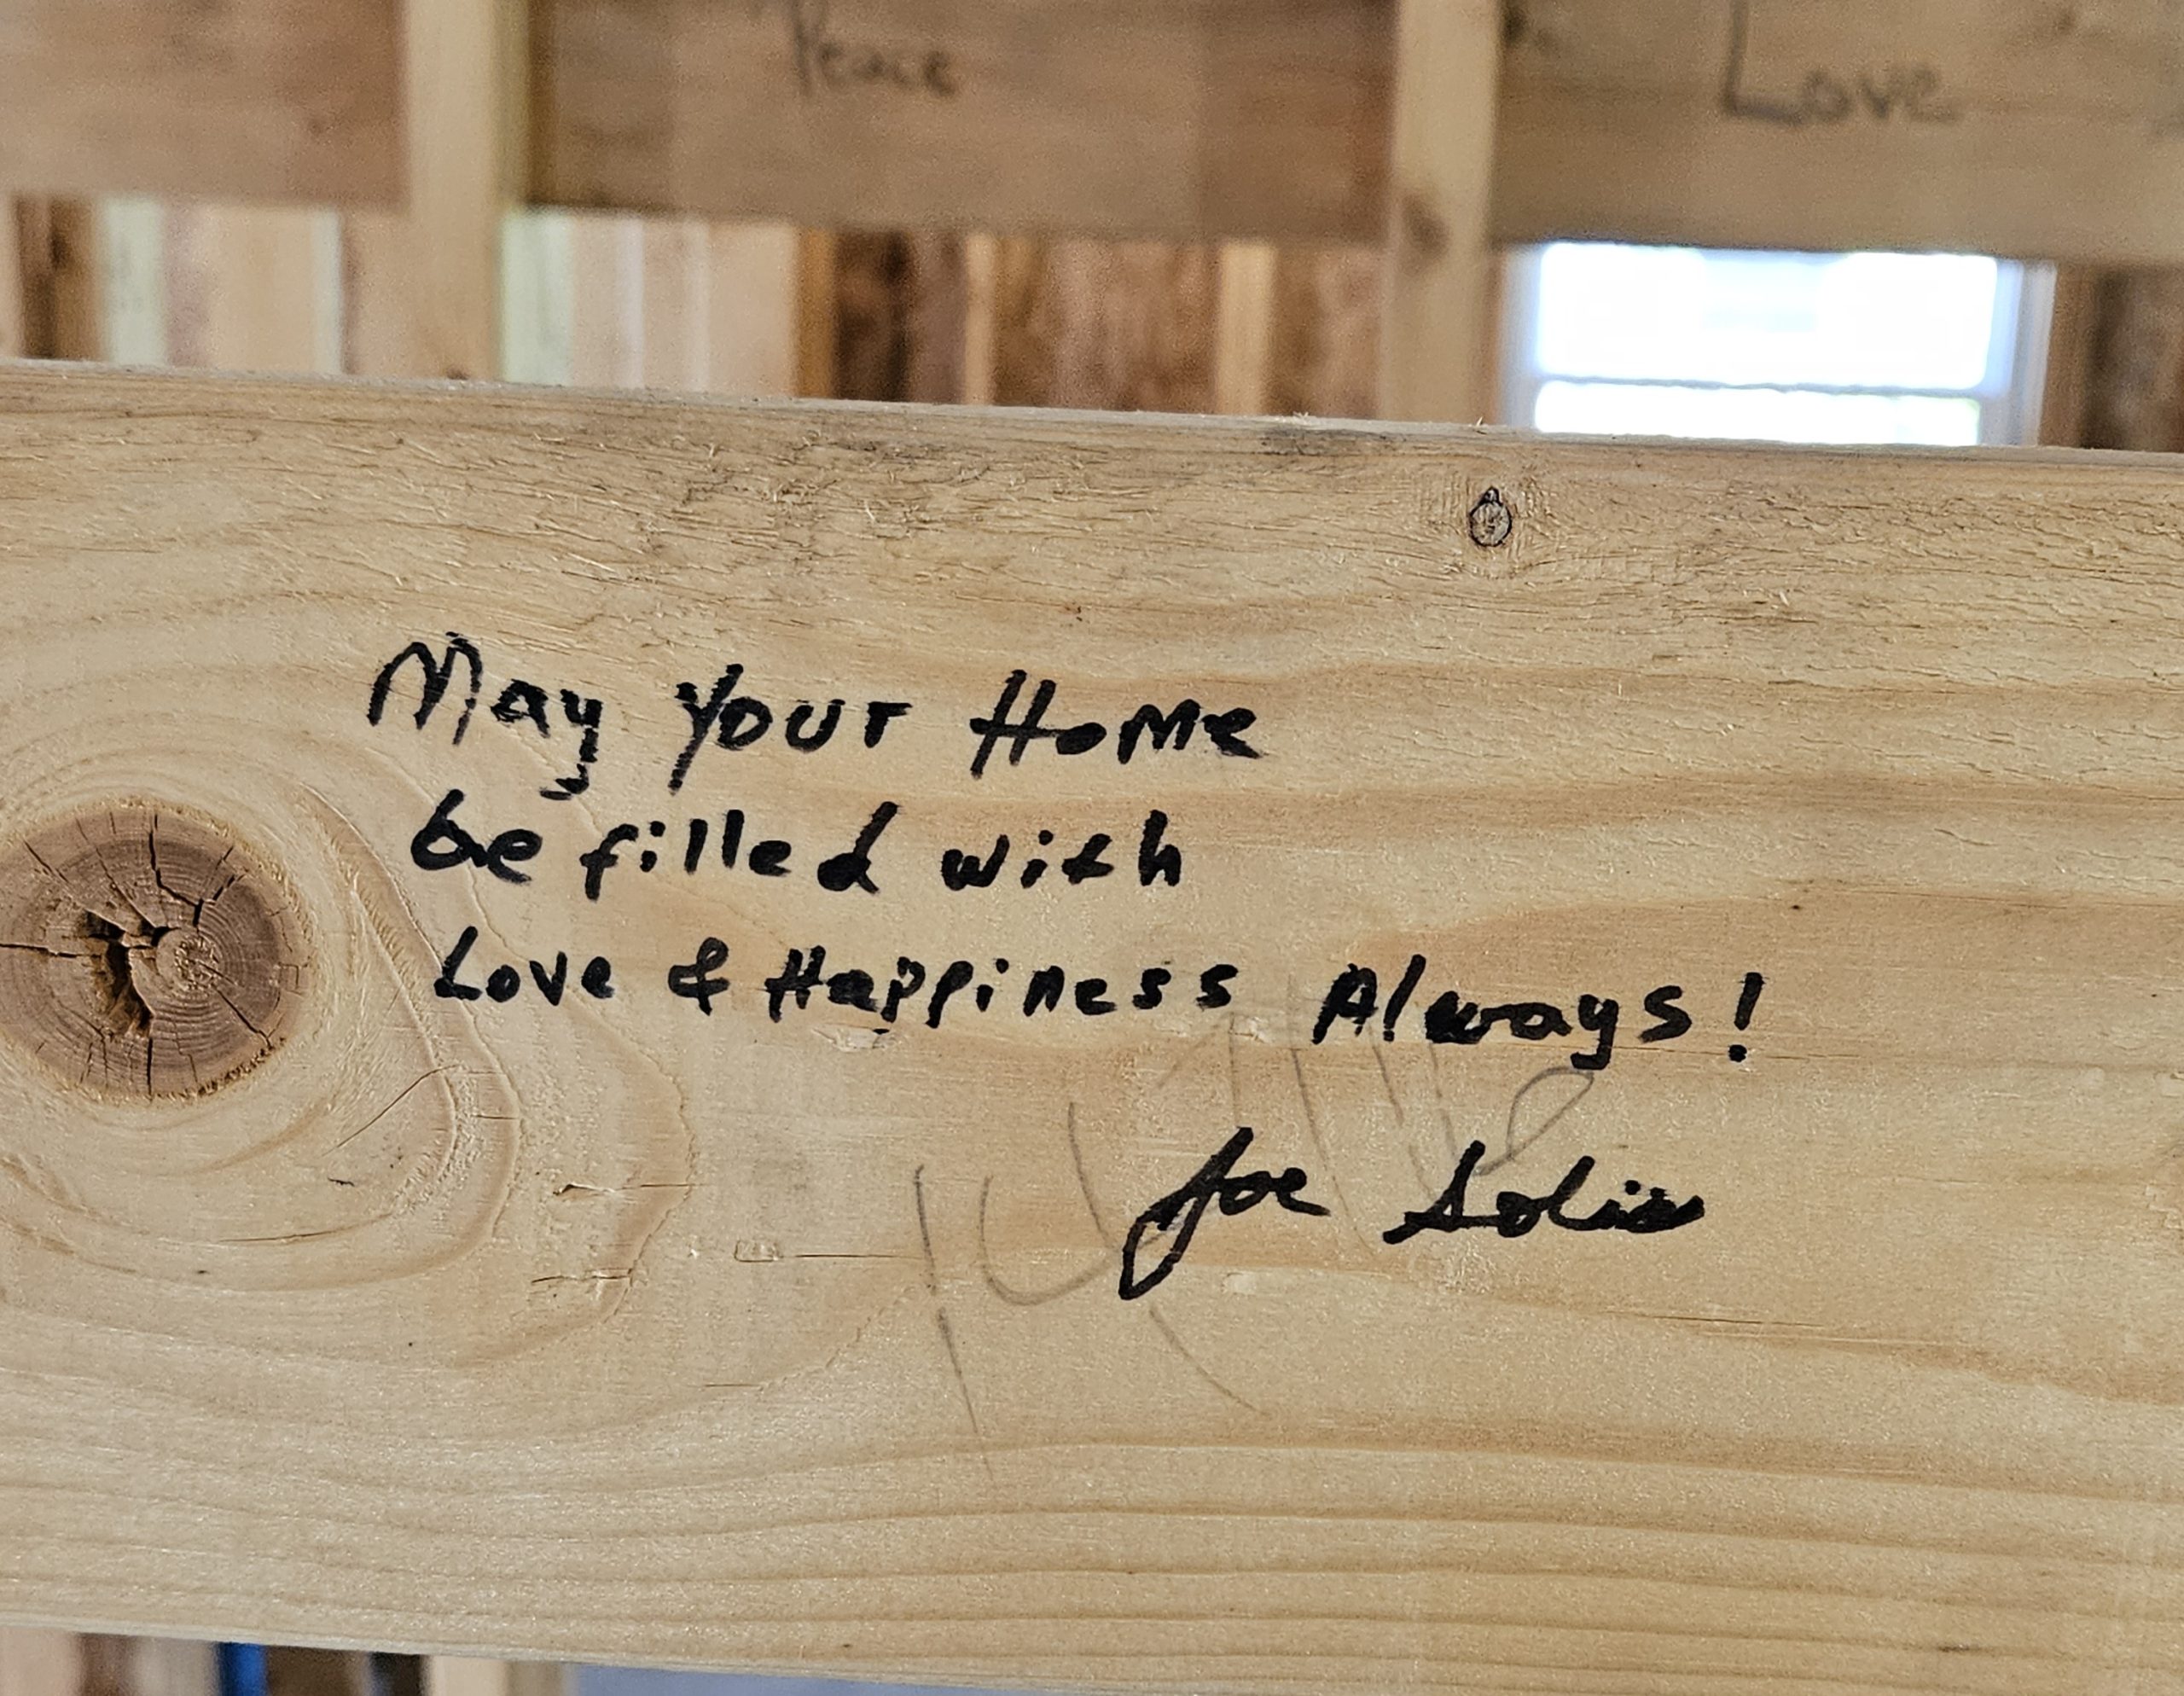 Peace
Love
May Your Home
be filled with
Love & Happiness Always!
Joe Solis